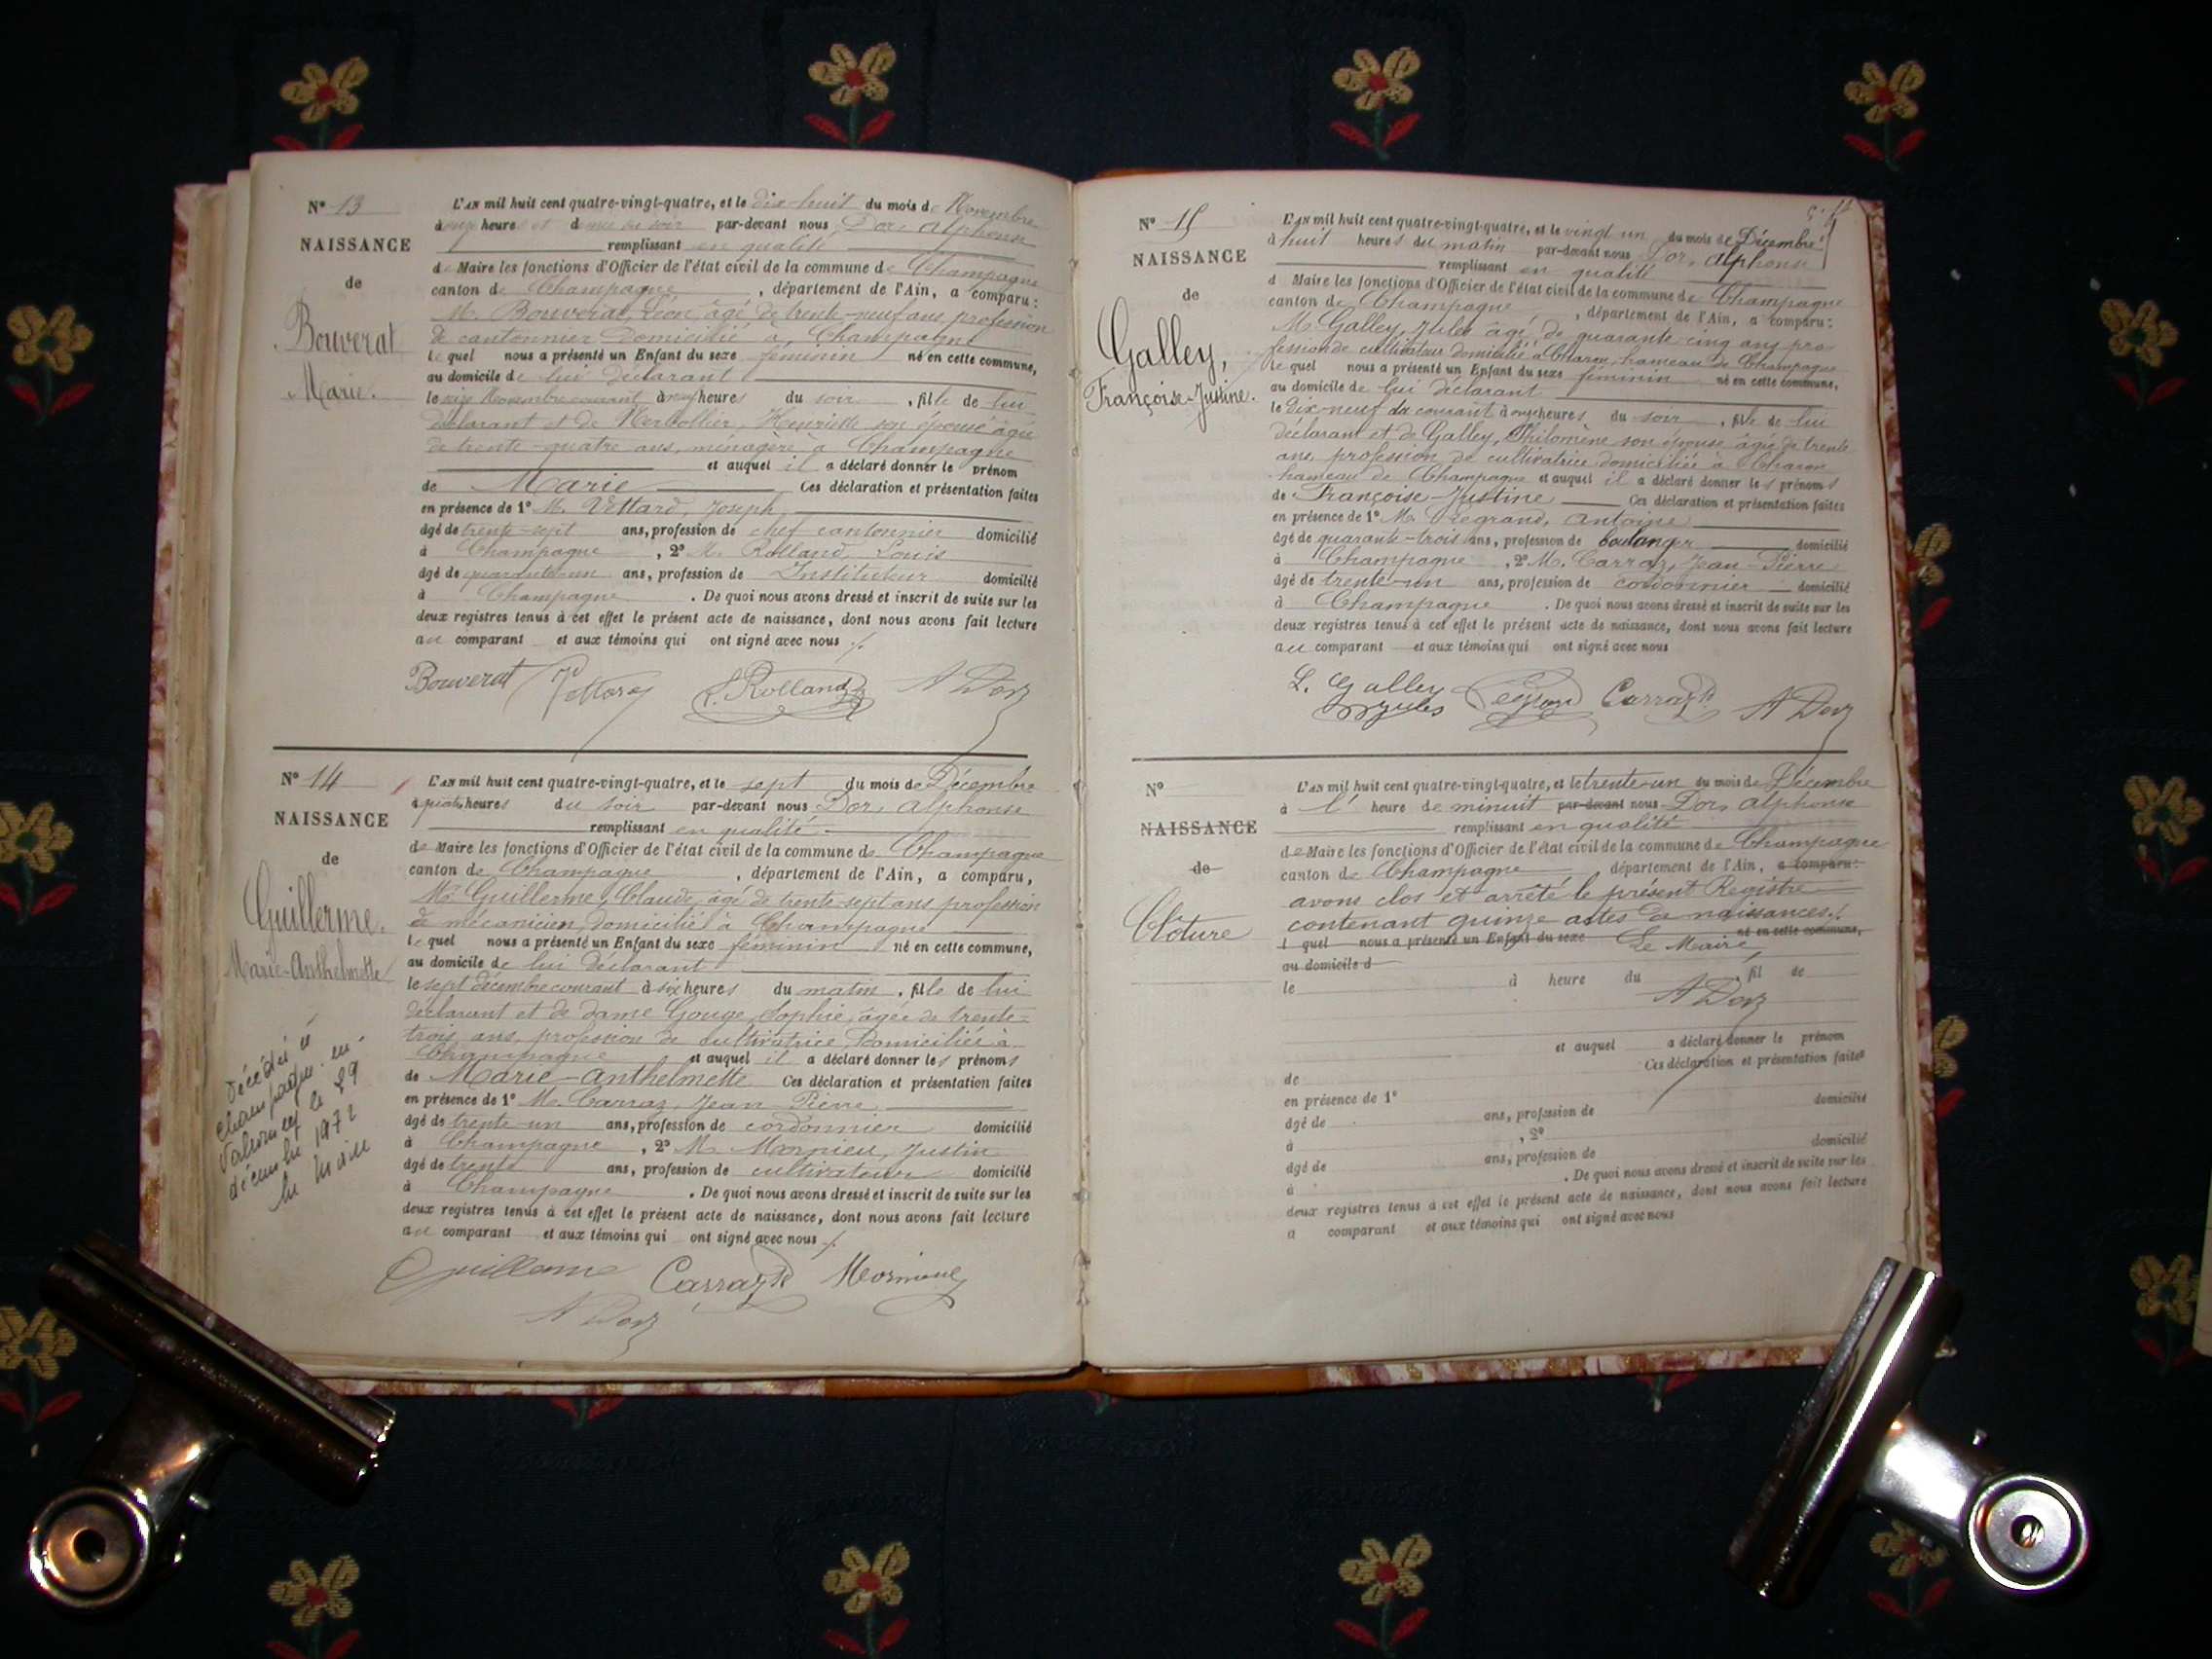 N° 13
NAISSANCE
de
Bouverat
Marie.
L'AN mil huit cent quatre-vingt-quatre, et le dix-huit du mois de Novembre
à heures et demie du soir par-devant nous Dor, Alphonse
remplissant en qualité
de Maire les fonctions d'Officier de l'état civil de la commune de Champagne
canton de Champagne, département de l'Ain, a comparu:
M. Bouverat, Léon, âgé de trente-neuf ans profession
de cantonnier Domicilié à Champagne
lequel nous a présenté un Enfant du sexe féminin né en cette commune,
au domicile de lui déclarant
le Novembre courant à heures du soir, fille de lui
déclarant et de Henriette son épouse âgée
de trente-quatre ans, ménagère à Champagne
et auquel il a déclaré donner le prénom
de Marie Ces déclaration et présentation faites
en présence de 1° M. Vettard, Joseph,
âgé de trente-sept ans, profession de chef cantonnier domicilié
à Champagne, 2° M. Rolland Louis
âgé de quarante-un ans, profession de Instituteur domicilié
à Champagne. De quoi nous avons dressé et inscrit de suite sur les
deux registres tenus à cet effet le présent acte de naissance, dont nous avons fait lecture
au comparant et aux témoins qui ont signé avec nous
Bouverat Vettard L. Rolland A Dor
N° 14
NAISSANCE
de
Guillerme.
Marie-Anthelmette
L'AN mil huit cent quatre-vingt-quatre, et le sept du mois de Décembre
à quatre heures du soir par-devant nous Dor, Alphonse
remplissant en qualité
de Maire les fonctions d'Officier de l'état civil de la commune de Champagne
canton de Champagne, département de l'Ain, a comparu,
Mr Guillerme, Claude, âgé de trente-sept ans profession
de mécanicien, domicilié à Champagne
lequel nous a présenté un Enfant du sexe féminin né en cette commune,
au domicile de lui déclarant
le sept décembre courant à six heures du matin, fille de lui
déclarant et de dame Gouge, Sophie, âgée de trente-
trois ans, profession de cultivatrice, Domiciliée à
Champagne et auquel il a déclaré donner les prénoms
de Marie-Anthelmette Ces déclaration et présentation faites
en présence de 1° M. Carraz, Jean Pierre
âgé de trente-un ans, profession de cordonnier domicilié
à Champagne, 2° M. Justin
âgé de trente ans, profession de cultivateur domicilié
à Champagne. De quoi nous avons dressé et inscrit de suite sur les
deux registres tenus à cet effet le présent acte de naissance, dont nous avons fait lecture
au comparant et aux témoins qui ont signé avec nous
Décédée à
Champagne-en-
Valromey le 29
décembre 1972
le Maire
Guillerme Carraz
A Dor
N° 15
NAISSANCE
de
Galley,
Françoise-Justine.
L'AN mil huit cent quatre-vingt-quatre, et le vingt un du mois de Décembre
à huit heures du matin par-devant nous Dor, Alphonse
remplissant en qualité
d Maire les fonctions d'Officier de l'état civil de la commune de Champagne
canton de Champagne, département de l'Ain, a comparu:
M. Galley, Jules âgé de quarante-cinq ans pro-
fession de cultivateur domicilié à Charon, hameau de Champagne
lequel nous a présenté un Enfant du sexe féminin né en cette commune,
au domicile de lui déclarant
le dix-neuf du courant à onze heures du soir, fille de lui
déclarant et de Galley, Philomène son épouse âgée de trente
ans, profession de cultivatrice domiciliée à Charon
hameau de Champagne et auquel il a déclaré donner les prénoms
de Françoise-Justine Ces déclaration et présentation faites
en présence de 1° M. Antoine
âgé de quarante-trois ans, profession de boulanger domicilié
à Champagne, 2° M. Carraz, Jean-Pierre
âgé de trente-un ans, profession de cordonnier domicilié
à Champagne. De quoi nous avons dressé et inscrit de suite sur les
deux registres tenus à cet effet le présent acte de naissance, dont nous avons fait lecture
au comparant et aux témoins qui ont signé avec nous
L. Galley Carraz A Dor
Jules
N°
NAISSANCE
de
Clôture
L'AN mil huit cent quatre-vingt-quatre, et le trente-un du mois de Décembre
à l' heure de minuit par-devant nous Dor, Alphonse
remplissant en qualité
de Maire les fonctions d'Officier de l'état civil de la commune de Champagne
canton de Champagne, département de l'Ain, a comparu:
avons clos et arrêté le présent Registre
contenant quinze actes de naissances.
l quel nous a présenté un Enfant du sexe né en cette commune,
Le Maire,
au domicile d
le à heure du, fil de
A Dor
et auquel a déclaré donner le prénom
Ces déclaration et présentation faites
de
en présence de 1°
domicilié
âgé de ans, profession de
à, 2°
domicilié
âgé de ans, profession de
à. De quoi nous avons dressé et inscrit de suite sur les
deux registres tenus à cet effet le présent acte de naissance, dont nous avons fait lecture
a comparant et aux témoins qui ont signé avec nous